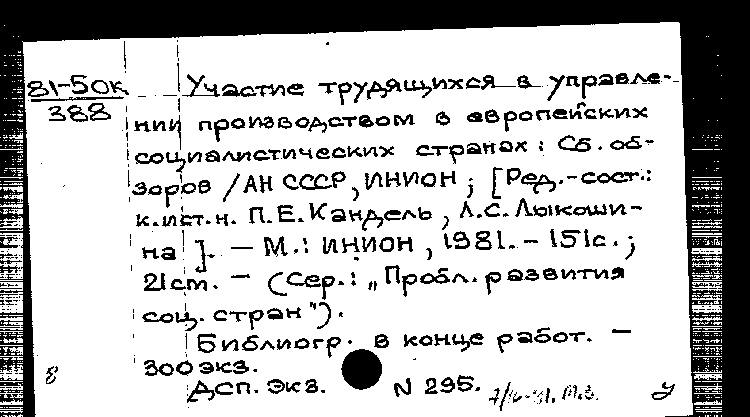 81-50к
388
Участие трудящихся в управле-
нии производством в европейских
социалистических странах: Сб. об-
зоров /АН СССР, ИНИОН; [Ред.-сост.:
к.ист.н. П.Е.Кандель, Л.С.Лыкоши-
на]. — М.: ИНИОН, 1981. - 151с.;
21см. — (Сер.: „Пробл. развития
соц. стран").
Библиогр. в конце работ. —
300 экз.
ДСП. Экз. N 295.
8
У